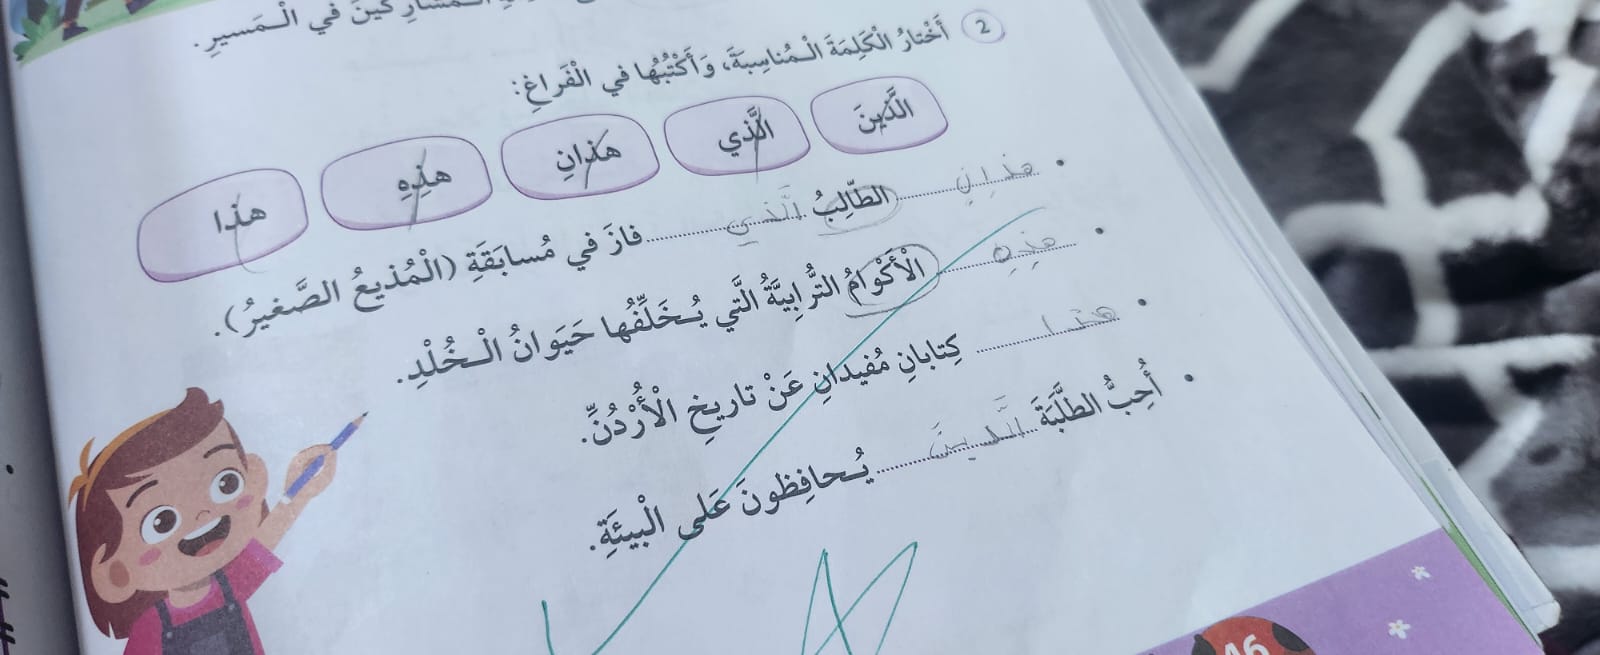 الْمُشارِكينَ في الْـمَسيرِ.
2 أَخْتارُ الْكَلِمَةَ الْـمُناسِبَةَ، وَأَكْتُبُها في الْفَراغِ:
الَّذينَ الَّذي هذانِ هذِهِ هذا
• هذانِ الطّالِبُ الَّذي فازَ في مُسابَقَةِ (الْمُذيعُ الصَّغيرُ).
• هذِهِ الْأَكْوامُ التُّرابِيَّةُ الَّتي يُـخَلِّفُها حَيَوانُ الْـخُلْدِ.
• هذا كِتابانِ مُفيدانِ عَنْ تاريخِ الْأُرْدُنِّ.
• أُحِبُّ الطَّلَبَةَ الَّذينَ يُـحافِظونَ عَلى الْبيئَةِ.
46